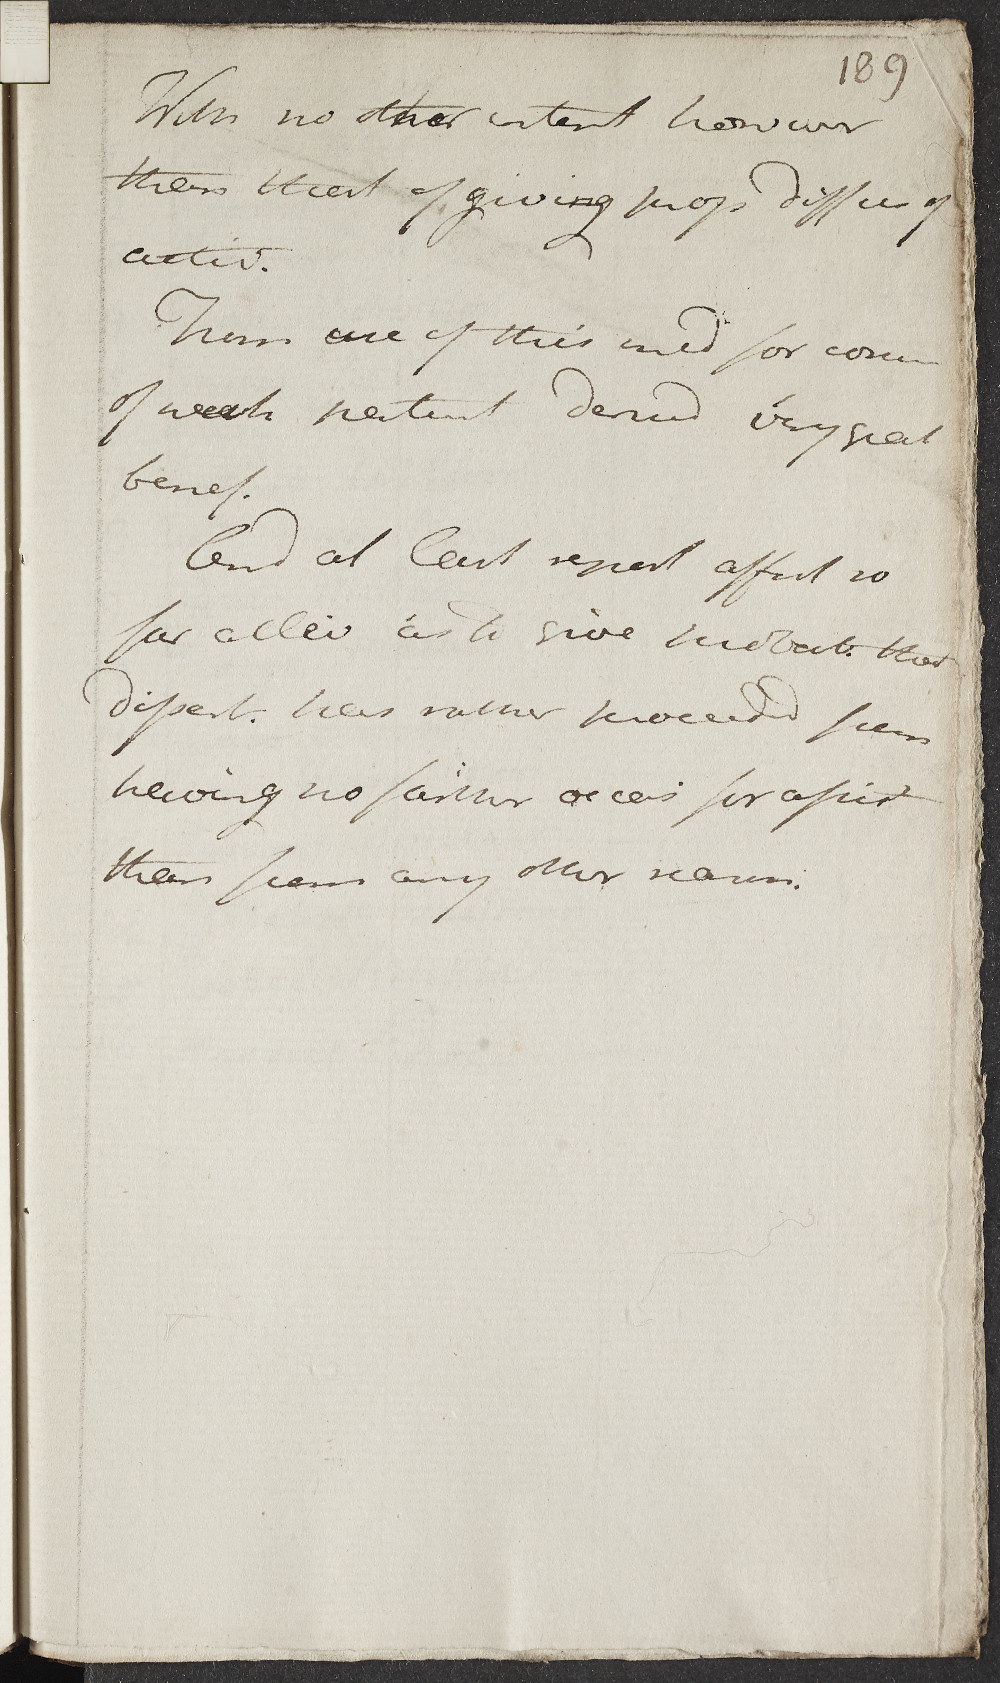 189
With no other intent however
than that of giving prop diffus of
activ.
From use of this med for cours
of week patient derived very great
benef.
And at least repeat affect so
far alleiv as to give probab. that
dissert. has rather proceeded from
having no farther occas for assist
than from any other reason.